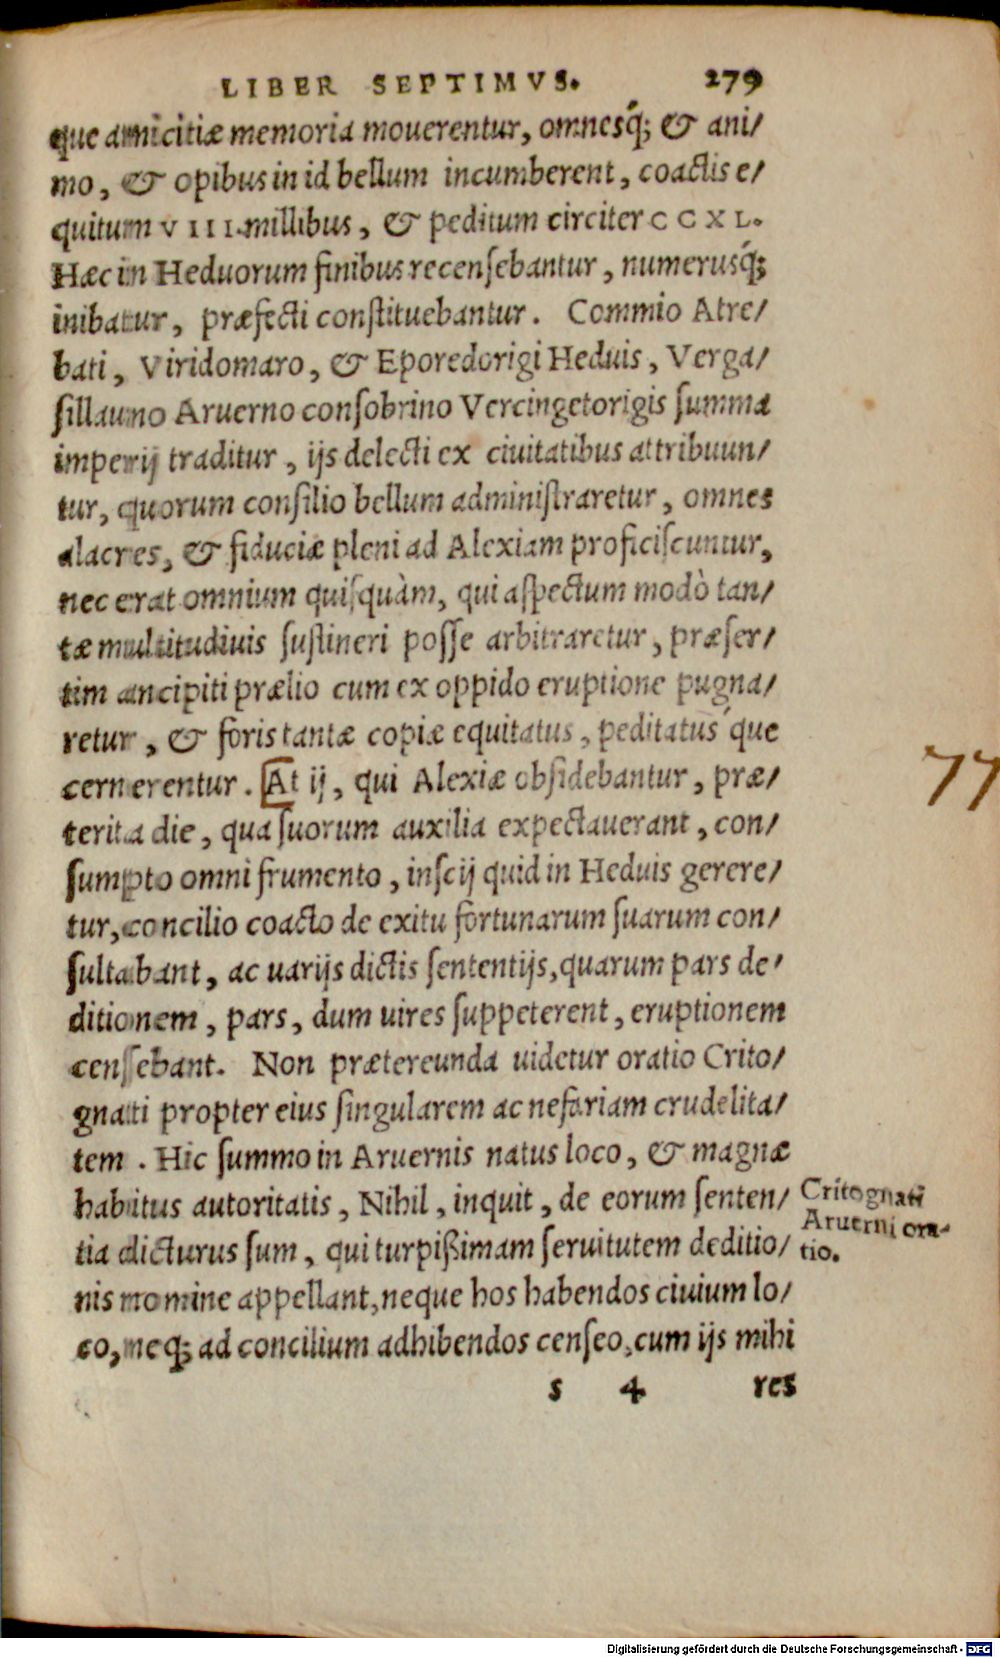 LIBER SEPTIMVS. 279
que amicitiæ memoria mouerentur, omnesq́; & ani/
mo, & opibus in id bellum incumberent, coactis e/
quitum VIII. millibus, & peditum circiter CCXL.
Hæc in Heduorum finibus recenſebantur, numerusq́;
inibatur, præfecti conſtituebantur. Commio Atre/
bati, Viridomaro, & Eporedorigi Heduis, Verga/
ſillauno Aruerno conſobrino Vercingetorigis ſumma
imperij traditur, ijs delecti ex ciuitatibus attribuun/
tur, quorum conſilio bellum adminiſtraretur, omnes
alacres, & fiduciæ pleni ad Alexiam proficiſcuntur,
nec erat omnium quiſquàm, qui aſpectum modò tan/
tæ multitudiuis ſuſtineri poſſe arbitraretur, præſer/
tim ancipiti prælio cum ex oppido eruptione pugna/
retur, & foris tantæ copiæ equitatus, peditatuś que
cernerentur. [At ij, qui Alexiæ obſidebantur, præ/
77
terita die, qua ſuorum auxilia expectauerant, con/
ſumpto omni frumento, inſcij quid in Heduis gerere/
tur, concilio coacto de exitu fortunarum ſuarum con/
ſultabant, ac uarijs dictis ſententijs, quarum pars de/
ditionem, pars, dum uires ſuppeterent, eruptionem
cenſebant. Non prætereunda uidetur oratio Crito/
gnati propter eius ſingularem ac nefariam crudelita/
tem. Hic ſummo in Aruernis natus loco, & magnæ
habitus autoritatis, Nihil, inquit, de eorum ſenten/
tia dicturus ſum, qui turpißimam ſeruitutem deditio/
nis nomine appellant, neque hos habendos ciuium lo/
co, neq; ad concilium adhibendos cenſeo, cum ijs mihi
Critognati
Aruerni ora-
tio.
s 4 res
Digitalisierung gefördert durch die Deutsche Forschungsgemeinschaft - DFG